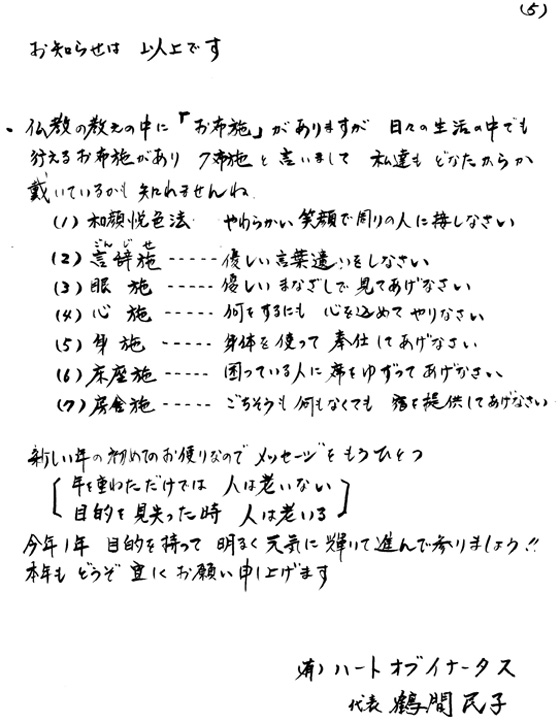 (5)
お知らせは 以上です
・仏教の教えの中に「お布施」がありますが 日々の生活の中でも
行えるお布施があり 7布施と言いまして 私達も どなたからか
戴いているかも 知れませんね
(1) 和顔悦色法 やわらかい笑顔で周りの人に接しなさい
ごんじせ
(2) 言辞施 ----- 優しい言葉遣いをしなさい
(3) 眼 施 ----- 優しい まなざしで見てあげなさい
(4) 心 施 ----- 何をするにも 心を込めて やりなさい
(5) 身 施 ----- 身体を使って 奉仕してあげなさい
(6) 床座施 ----- 困っている人に席をゆずってあげなさい
(7) 房舎施 ----- ごちそうも何もなくても 宿を提供してあげなさい
新しい年の初めてのお便りなので メッセージをもうひとつ
年を重ねただけでは 人は老いない
目的を見失った時 人は老いる
今年1年 目的を持って 明るく元気に輝いて進んで参りましょう!!
本年も どうぞ 宜しく お願い申し上げます
(有) ハート オブ イナータス
代表 鶴間民子